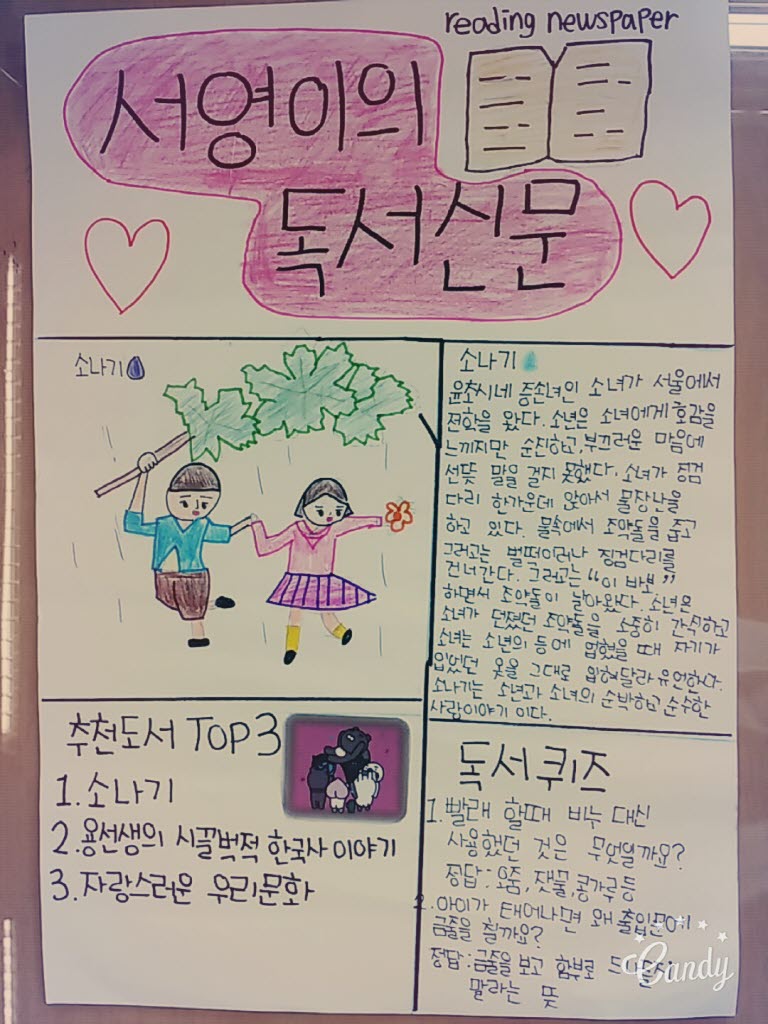 reading newspaper
서영이의
독서신문
소나기
소나기
윤초시네 증손녀인 소녀가 서울에서
전학을 왔다. 소년은 소녀에게 호감을
느끼지만 순진하고, 부끄러운 마음에
선뜻 말을 걸지 못했다. 소녀가 징검
다리 한가운데 앉아서 물장난을
하고 있다. 물속에서 조약돌을 줍고
그러고는 벌떡이러나 징검다리를
건너간다. 그러고는 "이 바보"
하면서 조약돌이 날아왔다. 소년은
소녀가 던졌던 조약돌을 소중히 간직하고
소녀는 소년의 등에 업혔을 때 자기가
입었던 옷을 그대로 입혀달라 유언한다.
소나기는 소년과 소녀의 순박하고 순수한
사랑이야기 이다.
추천도서 TOP3
1. 소나기
2. 용선생의 시끌벅적 한국사 이야기
3. 자랑스러운 우리문화
독서퀴즈
1. 빨래 할때 비누 대신
사용했던 것은 무엇일까요?
정답 : 오줌, 잿물, 콩가루등
2. 아이가 태어나면 왜 출입문에
금줄을 칠까요?
정답 : 금줄을 보고 함부로
말라는 뜻
Candy